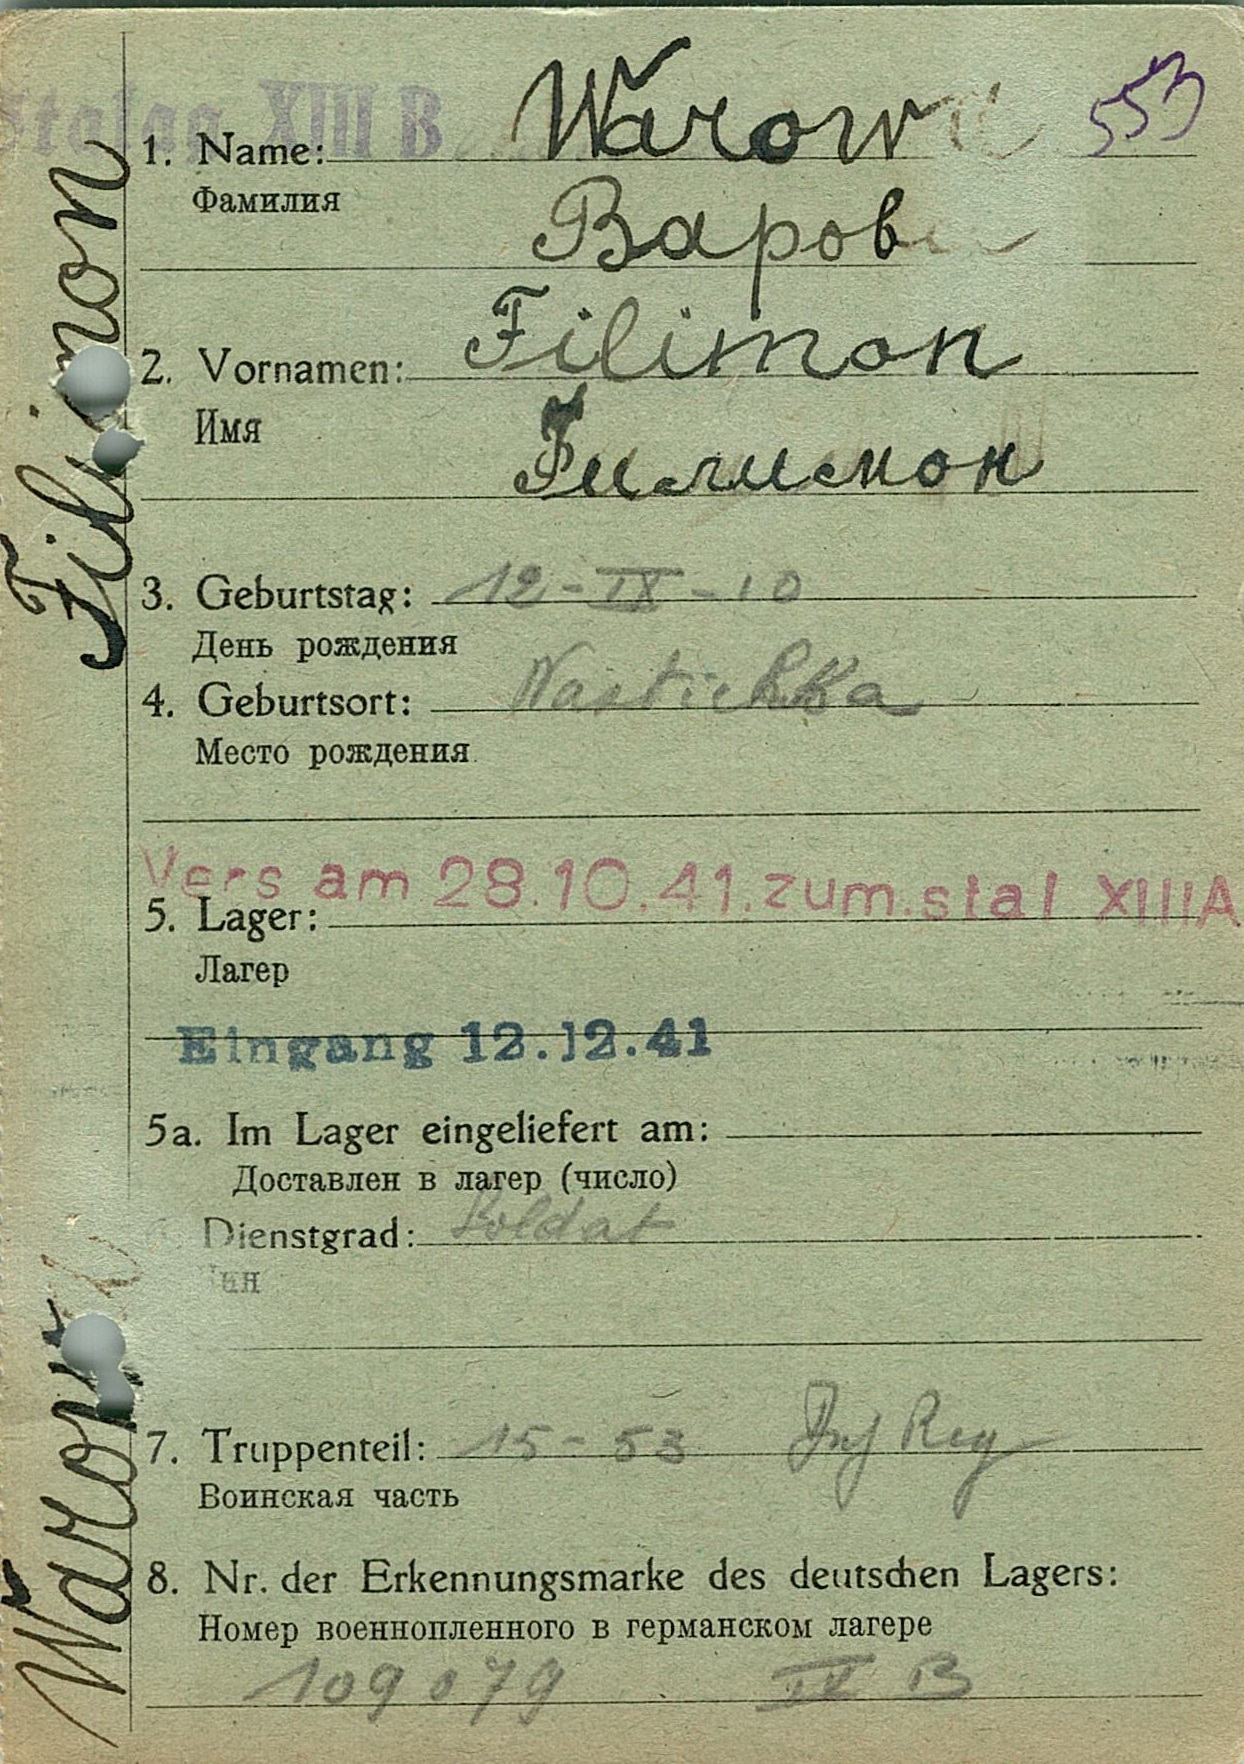 Stalag XIII B
553
1. Name: Warow
Фамилия
Варов
2. Vornamen: Filimon
Имя
Филимон
3. Geburtstag: 12-IX-10
День рождения
4. Geburtsort:
Место рождения
Vers am 28.10.41.zum.stal XIIIA
5. Lager:
Лагер
Eingang 12.12.41
5a. Im Lager eingeliefert am:
Доставлен в лагер (число)
Dienstgrad: Soldat
7. Truppenteil: 15-53 Inf Reg
Воинская часть
8. Nr. der Erkennungsmarke des deutschen Lagers:
Номер военнопленного в германском лагере
109079 IV B
Warow
Filimon